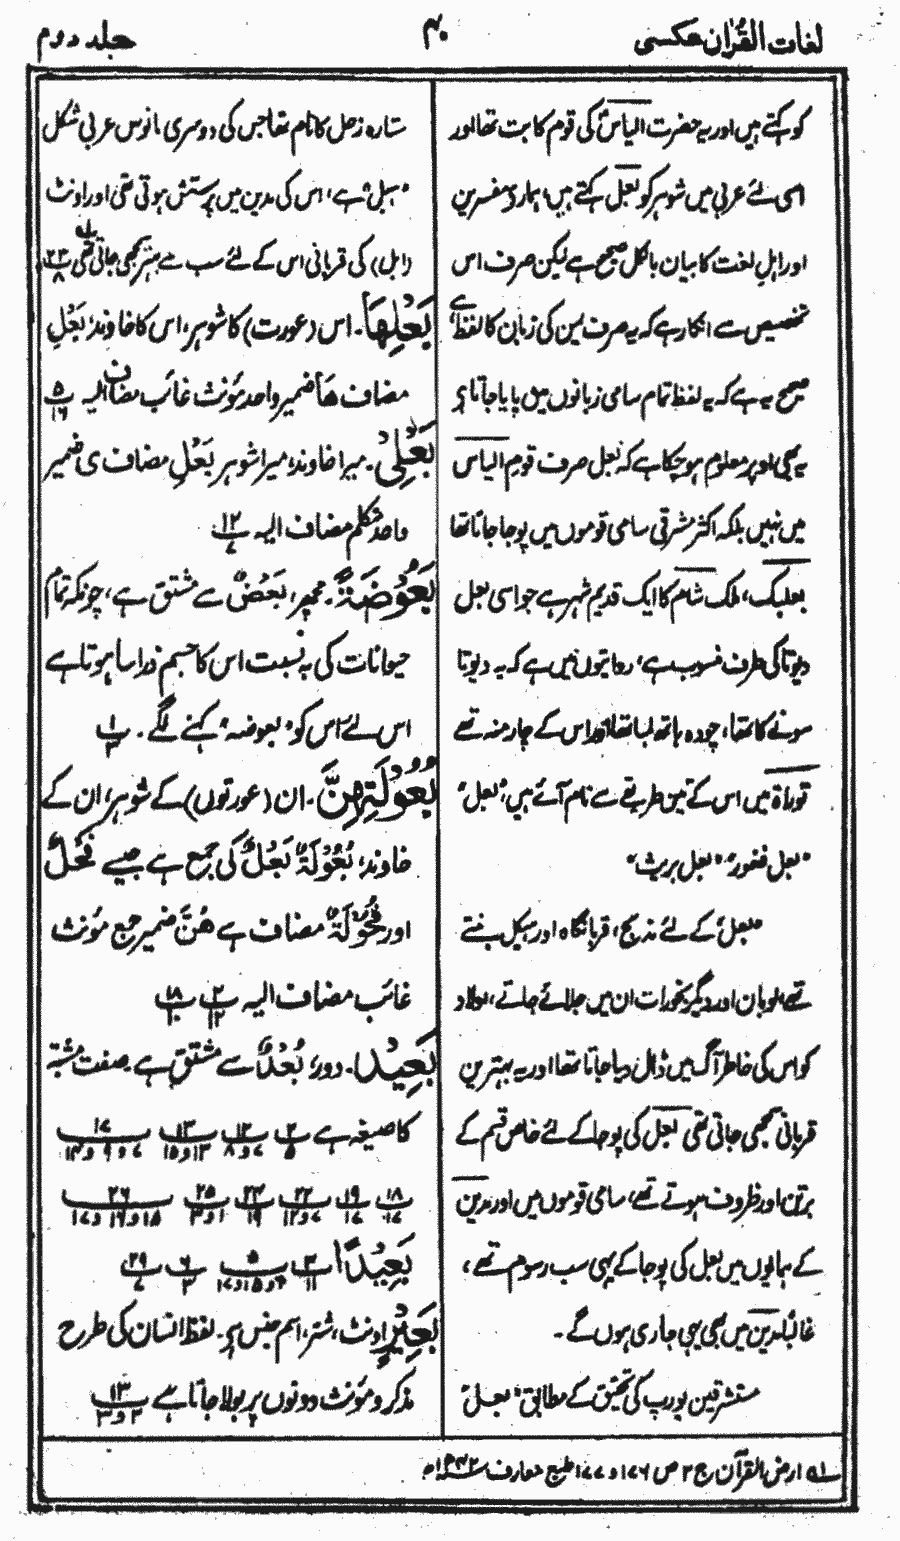 لغات القرآن عکسی
۴۰
جلد دوم
کو کہتے ہیں اور یہ حضرت الیاسؑ کی قوم کا بت تھا اور
اسی لئے عربی میں شوہر کو بعل کہتے ہیں، ہمارے مفسرین
اور اہلِ لغت کا بیان بالکل صحیح ہے لیکن صرف اس
تخصیص سے انکار ہے کہ یہ صرف یمن کی زبان کا لفظ ہے
صحیح یہ ہے کہ یہ لفظ تمام سامی زبانوں میں پایا جاتا ہے
یہ بھی اوپر معلوم ہو چکا ہے کہ بعل صرف قومِ الیاس
میں نہیں بلکہ اکثر مشرقی سامی قوموں میں پوجا جاتا تھا
بعلبک، ملک شام کا ایک قدیم شہر ہے جو اسی بعل
دیوتا کی طرف منسوب ہے، روایتوں میں ہے کہ یہ دیوتا
سونے کا تھا، چودہ ہاتھ لمبا تھا اور اس کے چار منہ تھے
توراۃ میں اس کے تین طریقے سے نام آئے ہیں، "بعل"
"بعل فغور" "بعل بریث"
بعل کے لئے مذبح، قربانگاہ اور ہیکل بنتے
تھے، لوبان اور دیگر بخورات ان میں جلائے جاتے، اولاد
کو اس کی خاطر آگ میں ڈال دیا جاتا تھا اور یہ بہترین
قربانی سمجھی جاتی تھی بعل کی پوجا کے لئے خاص قسم کے
برتن اور ظروف ہوتے تھے، سامی قوموں میں اور مدین
کے ہانوں میں بعل کی پوجا کے یہی سب رسوم تھے،
غالبًا مدین میں بھی یہی جاری ہوں گے۔
مستشرقین یورپ کی تحقیق کے مطابق "بعل"
ستارہ زحل کا نام تھا جس کی دوسری مانوس عربی شکل
"ہبل" ہے، اس کی مدین میں پرستش ہوتی تھی اور اونٹ
(ابل) کی قربانی اس کے لئے سب سے بہتر سمجھی جاتی تھی ؎۱ ۲۳/۸
بَعْلِهَا۔ اس (عورت) کا شوہر، اس کا خاوند، بَعْلِ
مضاف هَا ضمیر واحد مؤنث غائب مضاف الیہ ۵/۱۶
بَعْلِیْ۔ میرا خاوند، میرا شوہر بَعْلِ مضاف ی ضمیر
واحد متکلم مضاف الیہ ۱۲/۷
بَعُوْضَةً۔ مچھر، بَعْضٌ سے مشتق ہے، چونکہ تمام
حیوانات کی بہ نسبت اس کا جسم ذرا سا ہوتا ہے
اس لئے اس کو "بعوضہ" کہنے لگے۔ ۱/۳
بُعُوْلَتِهِنَّ۔ ان (عورتوں) کے شوہر، ان کے
خاوند، بُعُوْلَةٌ بَعْلٌ کی جمع ہے جیسے فَحْلٌ
اور فُحُوْلَةٌ مضاف ہے هُنَّ ضمیر جمع مؤنث
غائب مضاف الیہ ۲/۱۲ ۱۸/۱۰
بَعِیْدٌ۔ دور، بُعْدٌ سے مشتق ہے۔ صفت مشبہ
کا صیغہ ہے ۲/۵ ۱۲/۷و۸ ۱۳/۱۳و۱۵ ۱۷/۷و۹و۱۴
۱۸/۱۷ ۱۹/۱۷ ۲۲/۷و۱۲ ۲۴/۱۹ ۲۵/۱و۳ ۲۶/۱۵و۱۶و۱۷
بَعِیْدًا ۳/۱۱ ۵/۴و۱۵و۱۷ ۶/۳ ۲۹/۷
بَعِیْرٍ۔ اونٹ، شتر، اسم جنس ہے۔ لفظ انسان کی طرح
مذکر و مؤنث دونوں پر بولا جاتا ہے ۱۳/۲و۳
؎۱ ارض القرآن ج ۲ ص ۱۷۶ و ۱۷۷ طبع معارف ۱۳۴۲ھ